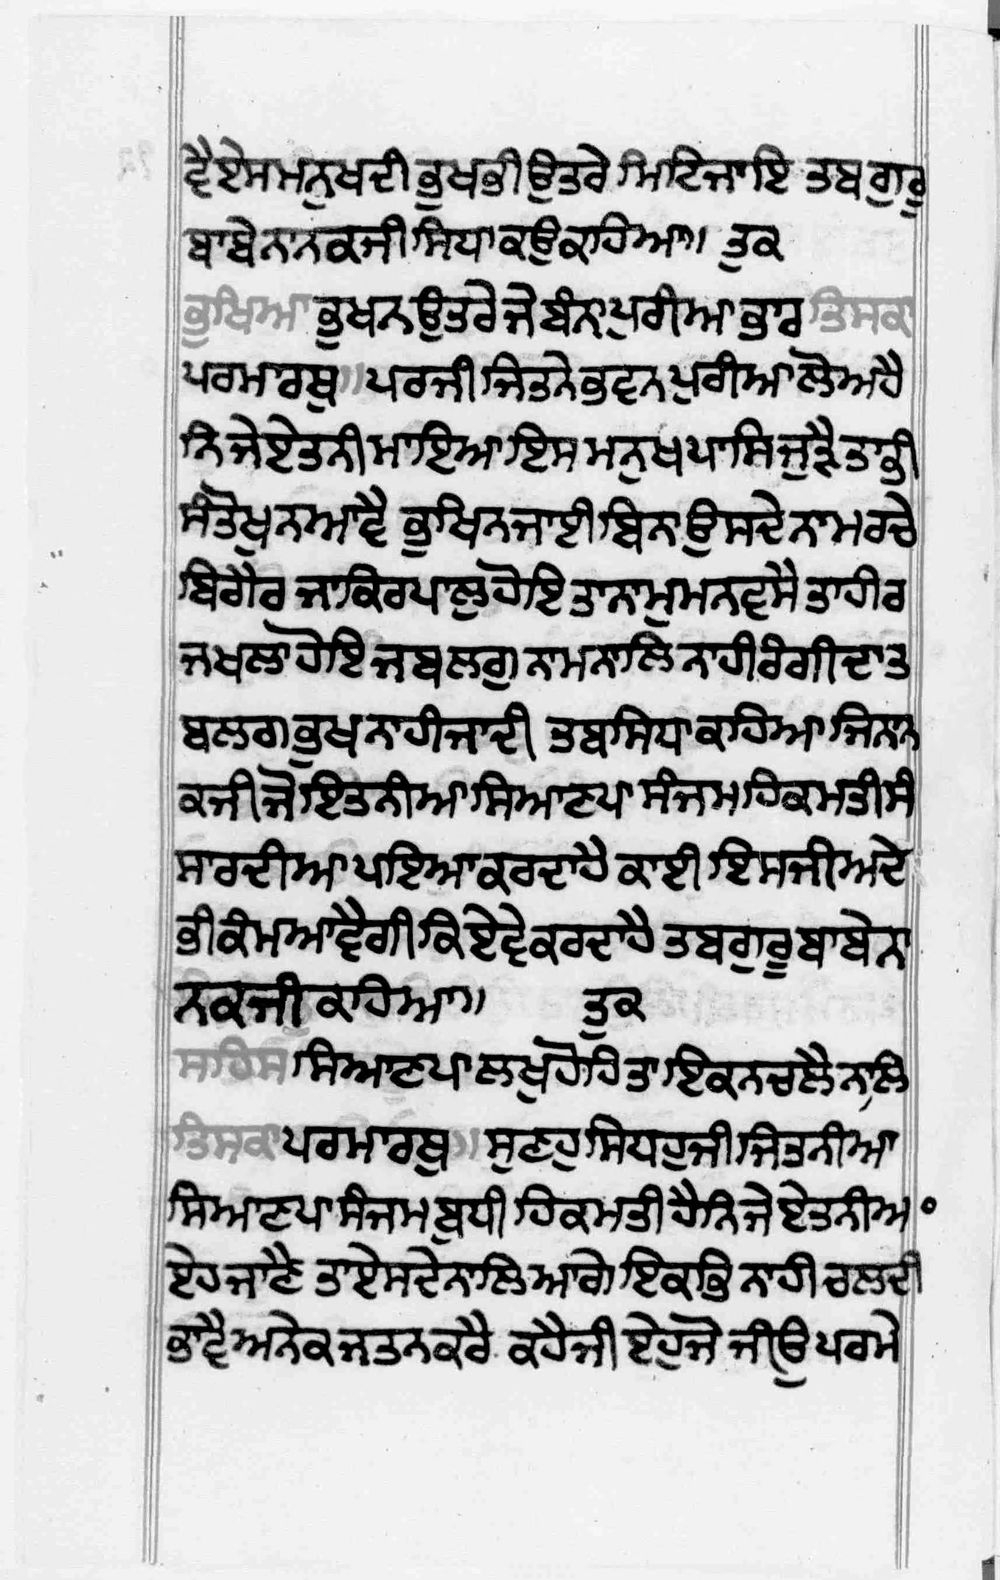 ਵੈ ਏਸ ਮਨੁਖ ਦੀ ਭੁਖ ਭੀ ਉਤਰੇ ਮਿਟਿ ਜਾਇ ਤਬ ਗੁਰੂ
ਬਾਬੇ ਨਾਨਕ ਜੀ ਸਿਧਾ ਕਉ ਕਹਿਆ॥ ਤੁਕ
ਭੁਖਿਆ ਭੁਖ ਨ ਉਤਰੇ ਜੇ ਬੰਨਾ ਪੁਰੀਆ ਭਾਰ ਤਿਸਕਾ
ਪਰਮਾਰਥੁ॥ ਪਰ ਜੀ ਜਿਤਨੇ ਭਵਨ ਪੁਰੀਆ ਲੋਅ ਹੈ
ਨਿ ਜੇ ਏਤਨੀ ਮਾਇਆ ਇਸ ਮਨੁਖ ਪਾਸਿ ਜੁੜੈ ਤਾ ਭੀ
ਸੰਤੋਖੁ ਨ ਆਵੈ ਭੁਖਿ ਨ ਜਾਈ ਬਿਨਾ ਉਸਦੇ ਨਾਮ ਰਚੇ
ਬਿਗੈਰ ਜਾ ਕਿਰਪਾਲੁ ਹੋਇ ਤਾ ਨਾਮੁ ਮਨ ਵਸੈ ਤਾ ਹੀ ਰ
ਜ ਖਲਾ ਹੋਇ ਜਬ ਲਗੁ ਨਾਮ ਨਾਲਿ ਨਾਹੀ ਰੰਗੀਦਾ ਤ
ਬ ਲਗ ਭੁਖ ਨਾਹੀ ਜਾਦੀ ਤਬ ਸਿਧਾ ਕਹਿਆ ਜਿ ਨਾਨ
ਕ ਜੀ ਜੋ ਇਤਨੀਆ ਸਿਆਣਪਾ ਸੰਜਮ ਹਿਕਮਤੀ ਸੰ
ਸਾਰ ਦੀਆ ਪਇਆ ਕਰਦਾ ਹੈ ਕਾਈ ਇਸ ਜੀਅ ਦੇ
ਭੀ ਕੰਮ ਆਵੈਗੀ ਕਿ ਏਵੇ ਕਰਦਾ ਹੈ ਤਬ ਗੁਰੂ ਬਾਬੇ ਨਾ
ਨਕ ਜੀ ਕਹਿਆ॥ ਤੁਕ
ਸਹਿਸ ਸਿਆਣਪਾ ਲਖੁ ਹੋਹਿ ਤਾ ਇਕ ਨ ਚਲੈ ਨਾਲਿ
ਤਿਸਕਾ ਪਰਮਾਰਥੁ॥ ਸੁਣਹੁ ਸਿਧਹੁ ਜੀ ਜਿਤਨੀਆ
ਸਿਆਣਪਾ ਸੰਜਮ ਬੁਧੀ ਹਿਕਮਤੀ ਹੈਨਿ ਜੇ ਏਤਨੀਅ॰
ਏਹ ਜਾਣੈ ਤਾ ਏਸਦੇ ਨਾਲਿ ਆਗੇ ਇਕ ਭਿ ਨਾਹੀ ਚਲਦੀ
ਭਾਵੈ ਅਨੇਕ ਜਤਨ ਕਰੈ ਕਹੈ ਜੀ ਏਹੁ ਜੋ ਜੀਉ ਪਰਮੇ